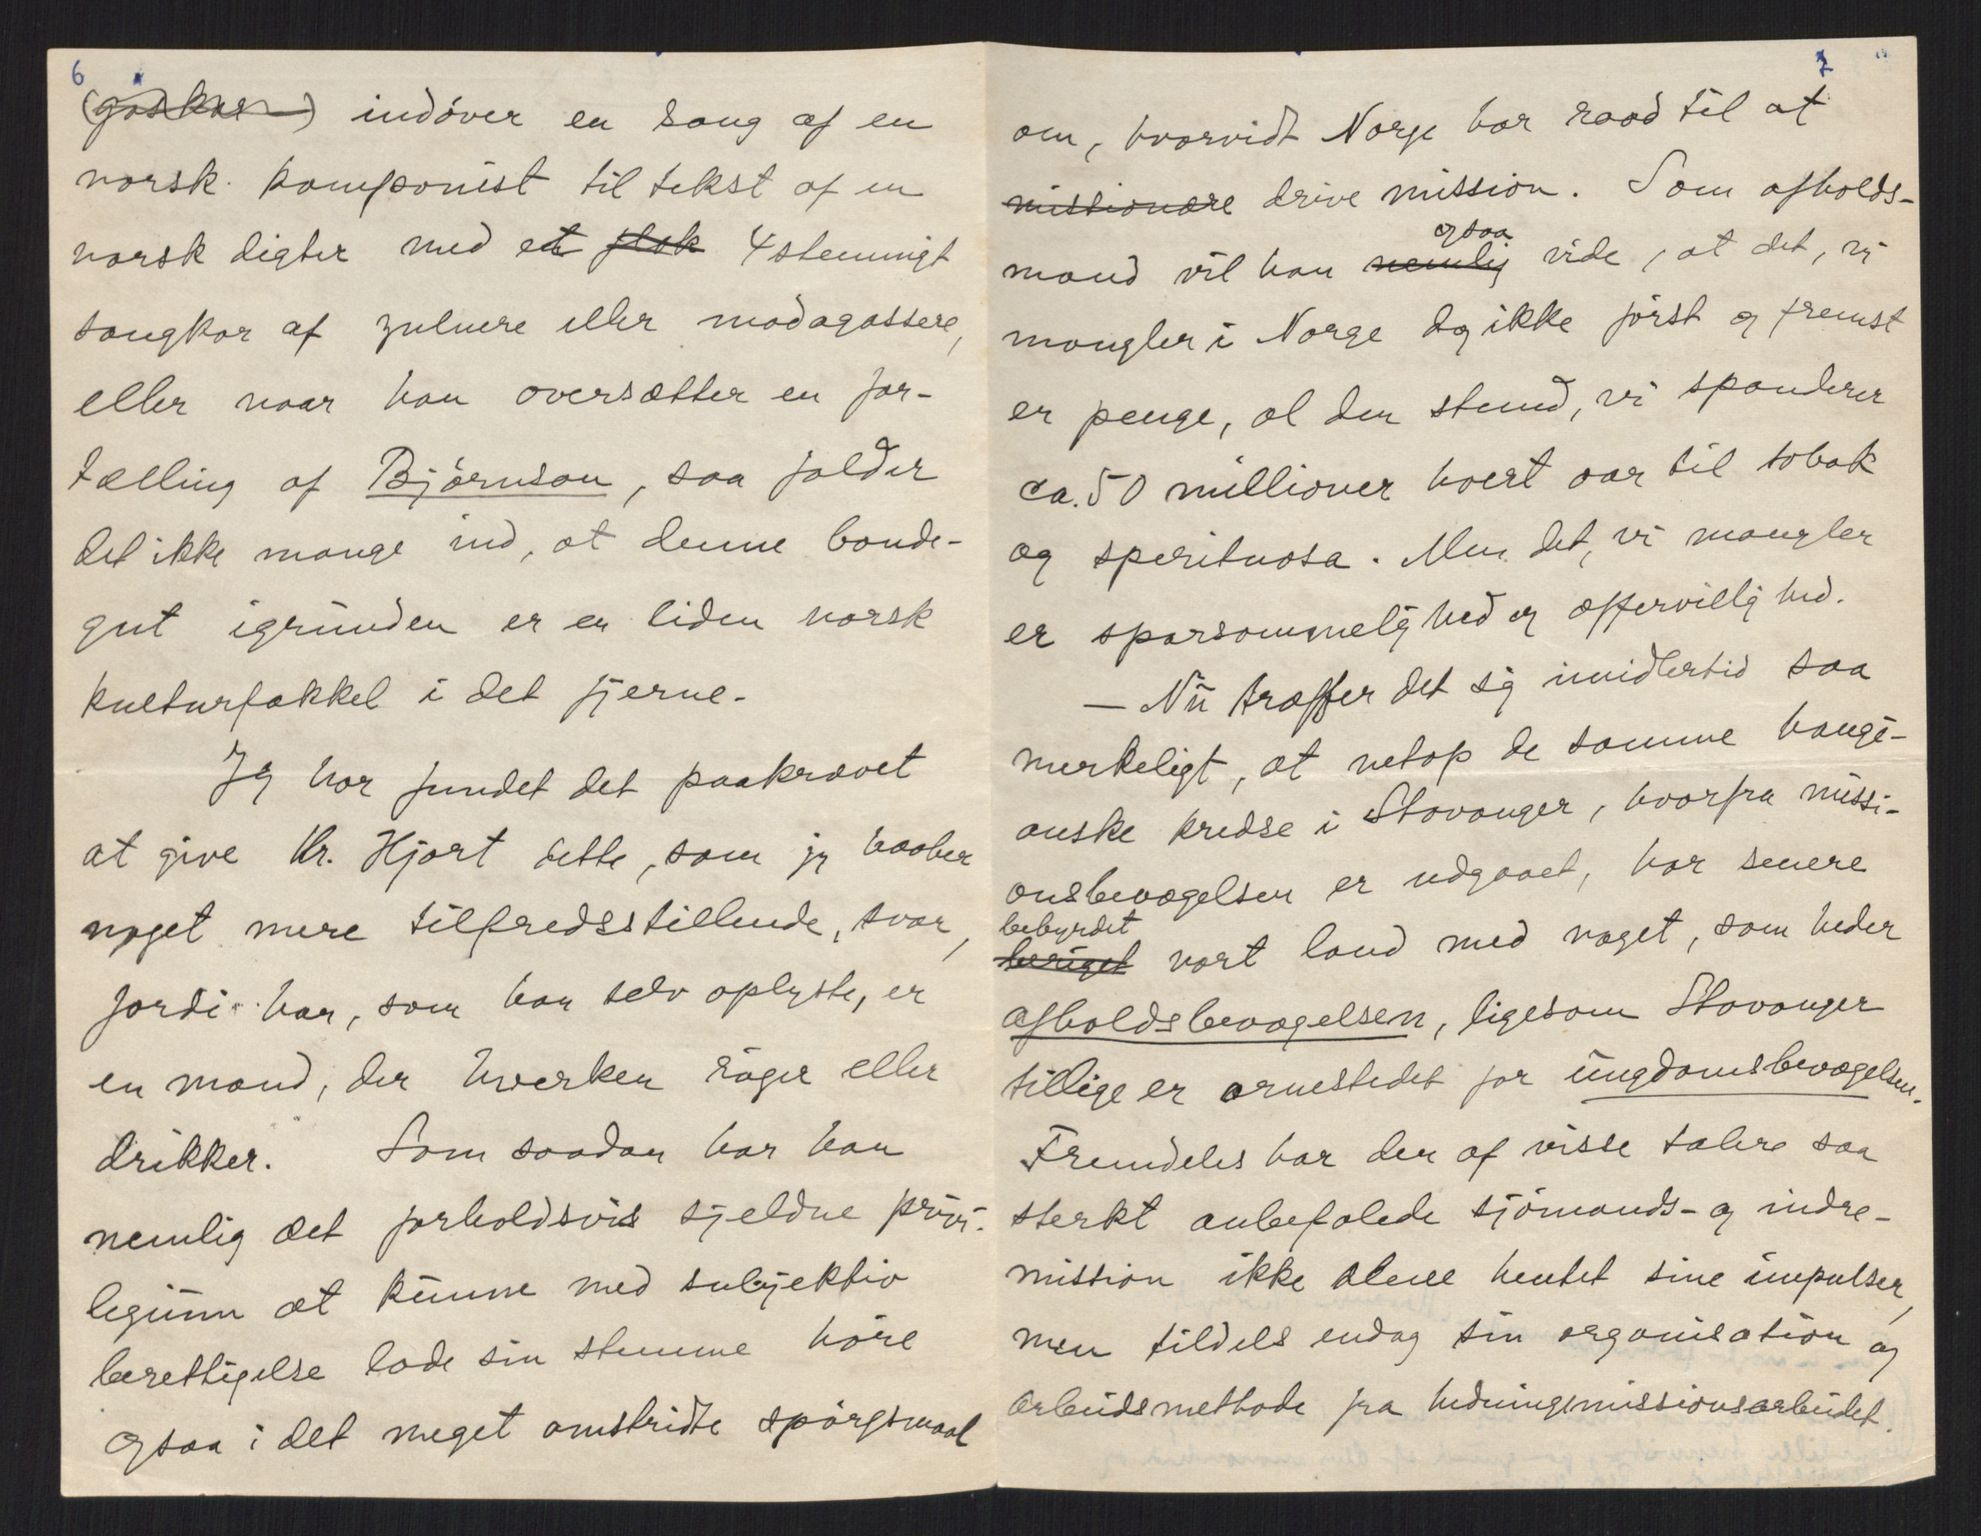 6
indöver en sang af en
norsk komponist til tekst af en
norsk digter med et flok 4stemmigt
sangkor af zuluere eller madagassere,
eller naar han oversætter en for-
tælling af Björnson, saa falder
det ikke mange ind, at denne bonde-
gut igrunden er en liden norsk
kulturfakkel i det fjerne.
Jeg har fundet det paakrævet
at give Hr. Hjort dette, som jeg haaber
noget mere tilfredsstillende, svar,
fordi han, som han selv oplyste, er
en mand, der hverken röger eller
drikker. Som saadan har han
nemlig det forholdsvis sjeldne privi-
legium at kunne med subjektiv
berettigelse lade sin stemme höre
ogsaa i det meget omstridte spörgsmaal
7
om, hvorvidt Norge har raad til at
missionære drive mission. Som afholds-
ogsaa
mand vil han nemlig vide, at det, vi
mangler i Norge dog ikke först og fremst
er penge, al den stund, vi spanderer
ca. 50 millioner hvert aar til tobak
og sperituosa. Men det, vi mangler
er sparsommelighed og offervillighed.
— Nu træffer det sig imidlertid saa
merkeligt, at netop de samme haugi-
anske kredse i Stavanger, hvorfra missi-
onsbevægelsen er udgaaet, har senere
bebyrdet
beriget vort land med noget, som heder
afholdsbevægelsen, ligesom Stavanger
tillige er arnestedet for ungdomsbevægelsen.
Fremdeles har den af visse talere saa
sterkt anbefalede sjömands- og indre-
mission ikke alene hentet sine impulser,
men tildels endog sin organisation og
arbeidsmethode fra hedningemissionsarbeidet.